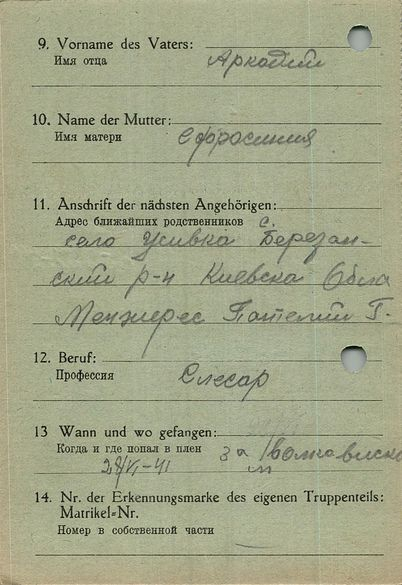 9. Vorname des Vaters:
Имя отца
Аркадий
10. Name der Mutter:
Имя матери
Ефросиния
11. Anschrift der nächsten Angehörigen:
Адрес ближайших родственников с.
село Усивка Березан-
ский р-н Киевска Обла
Г.
12. Beruf:
Профессия
Слесар
13 Wann und wo gefangen:
Когда и где попал в плен
за
28/VI-41
14. Nr. der Erkennungsmarke des eigenen Truppenteils:
Matrikel=Nr.
Номер в собственной части